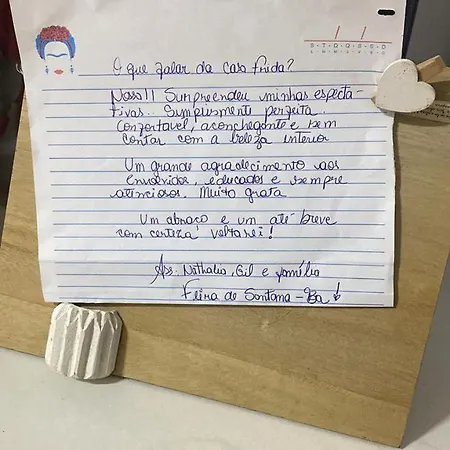 / /
S T Q Q S S D
O que falar da casa Frida?
Nossa!! Surpreendeu minhas expecta-
tivas... Simplismente perfeita.
Confortavel, aconchegante e sem
contar com a beleza interior
Um grande agradecimento aos
envolvidos, educados e sempre
atenciosos. Muito grata
Um abraço e um até breve
com certeza voltarei!
Ass: Nathalia, Gil e família
Feira de Santana - Ba